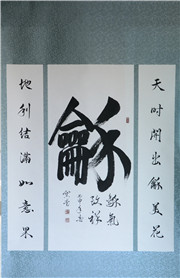 天时開出龢美花
龢
龢氣
致祥
地利结满如意果